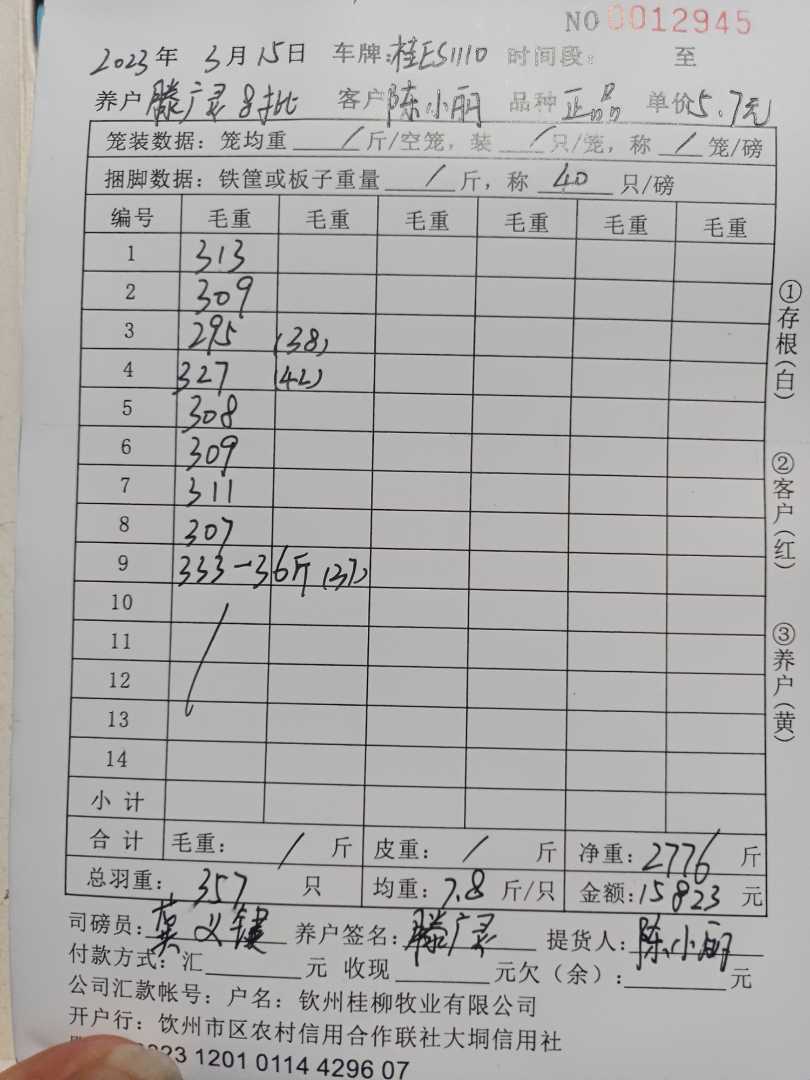 NO 0012945
2023 年 3 月 15 日 车牌:桂ES1110 时间段: 至
养户 滕广灵8批 客户 陈小丽 品种 正品 单价 5.7元
笼装数据: 笼均重 / 斤/空笼, 装 / 只/笼, 称 / 笼/磅
捆脚数据: 铁筐或板子重量 / 斤, 称 40 只/磅
编号 毛重 毛重 毛重 毛重 毛重 毛重
1 313
2 309
3 295 (38)
4 327 (42)
5 308
6 309
7 311
8 307
9 333-36斤(37)
10
11
12
13
14
小 计
合 计 毛重: / 斤 皮重: / 斤 净重: 2776 斤
总羽重: 357 只 均重: 7.8 斤/只 金额: 15823 元
司磅员: 莫义键 养户签名: 滕广灵 提货人: 陈小丽
付款方式: 汇 元 收现 元欠(余): 元
公司汇款帐号: 户名: 钦州桂柳牧业有限公司
开户行: 饮州市区农村信用合作联社大垌信用社
23 1201 0114 4296 07
①存根(白)
②客户(红)
③养户(黄)